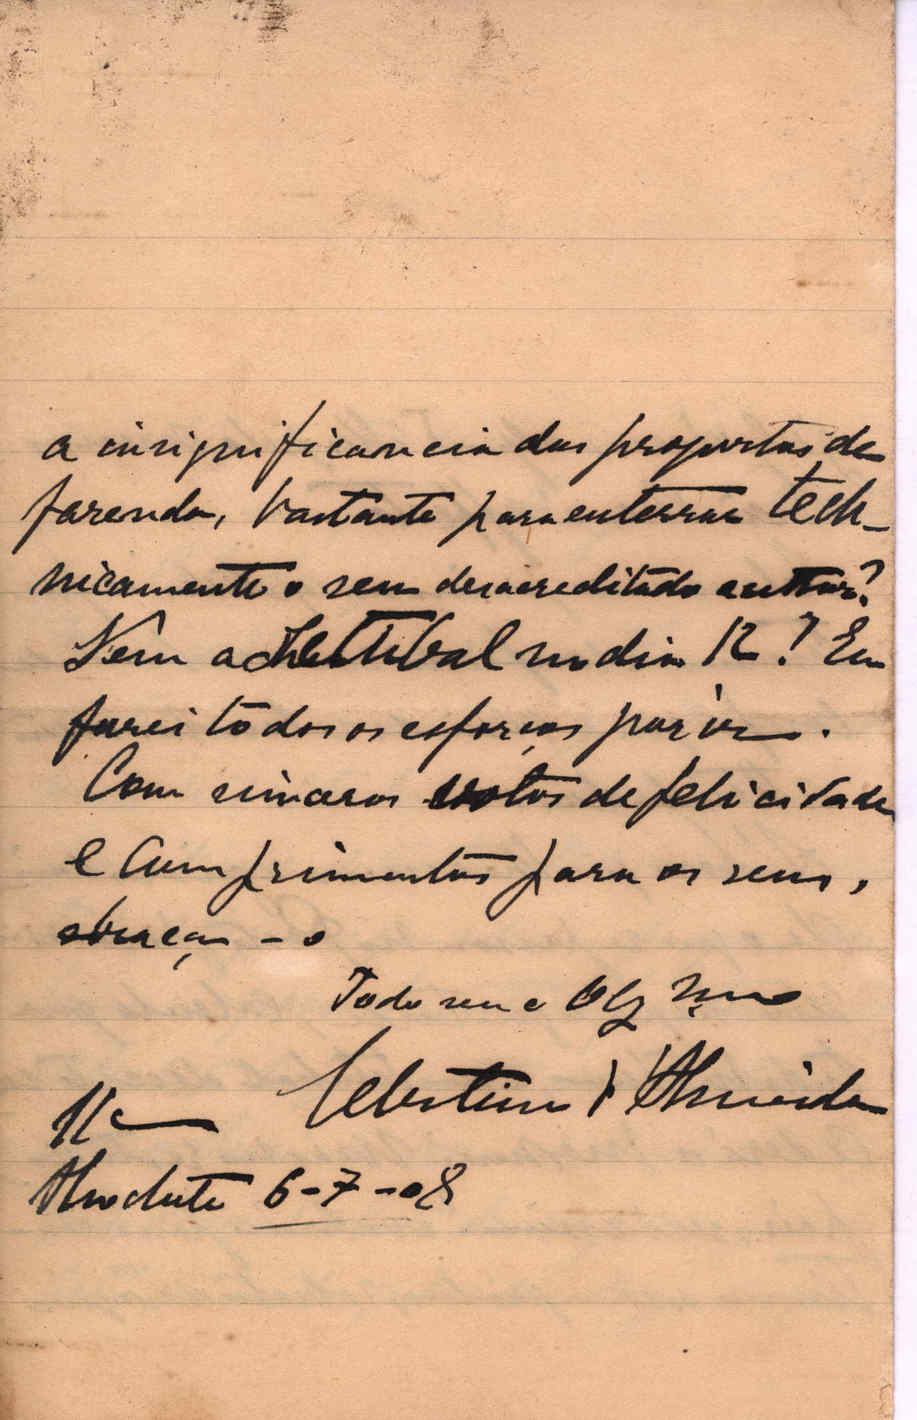 a insignificancia das propostas de
fazenda, bastante para enterrar tech-
nicamente o seu desacreditado author?
Vem a Setubal no dia 12? Eu
farei todos os esforços por ir.
Com sinceros votos de felicidade
e cumprimentos para os seus,
abraça-o
Todo seu e Obg
Celestino d'Almeida
Alcochete 6-7-08